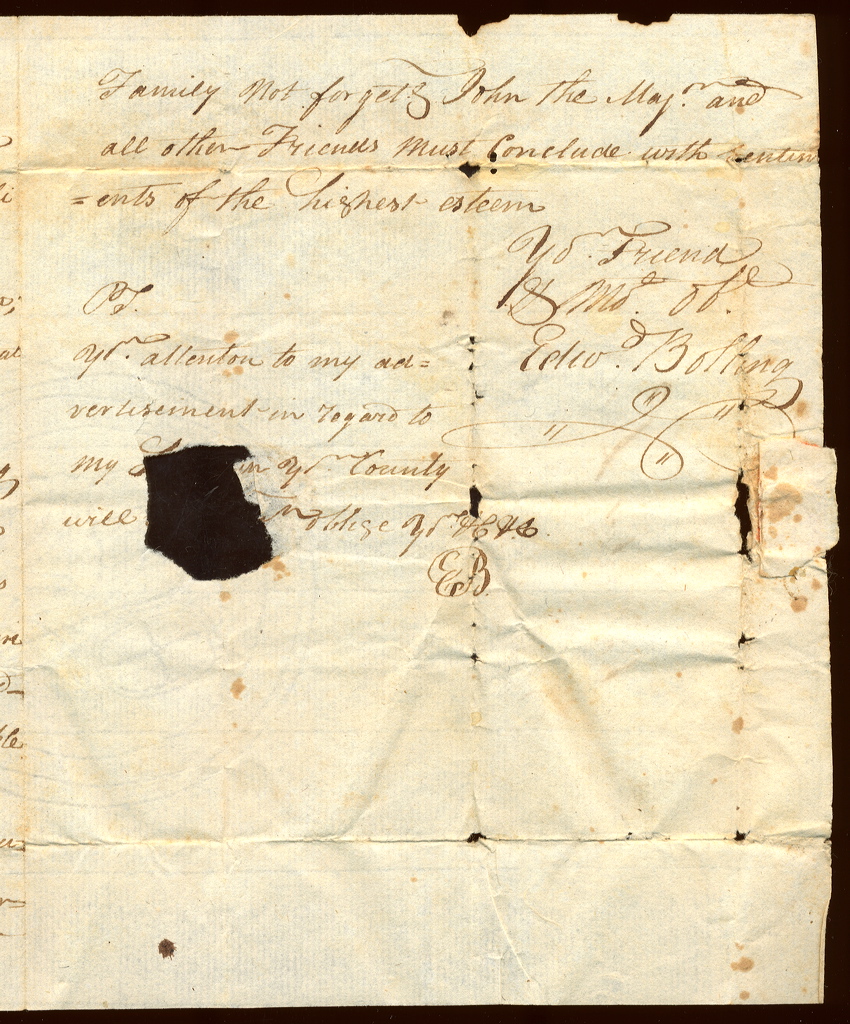 Family Not forgetg John the Majr. and
all other Friends Must Conclude with sentim
=ents of the highest esteem
Yor. Friend
& Mo. Obd.
Edwd. Bolling
PS.
Yr. attenton to my ad=
vertisement in regard to
my in Yr. County
will oblige Yr. &c &c
EB